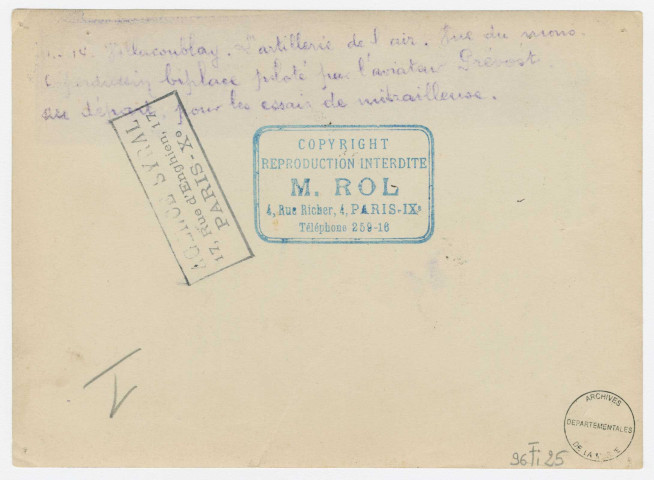 Villacoublay. L'artillerie de l'air. Vue du mono.
biplace piloté par l'aviateur Prévost.
au départ, pour les essais de mitrailleuse.
COPYRIGHT
REPRODUCTION INTERDITE
M. ROL
4, Rue Richer, 4, PARIS-IXe
Téléphone 259-16
17, Rue d'Enghien, 17
PARIS-Xe
1
ARCHIVES
DEPARTEMENTALES
DE LA
96 Fi 25